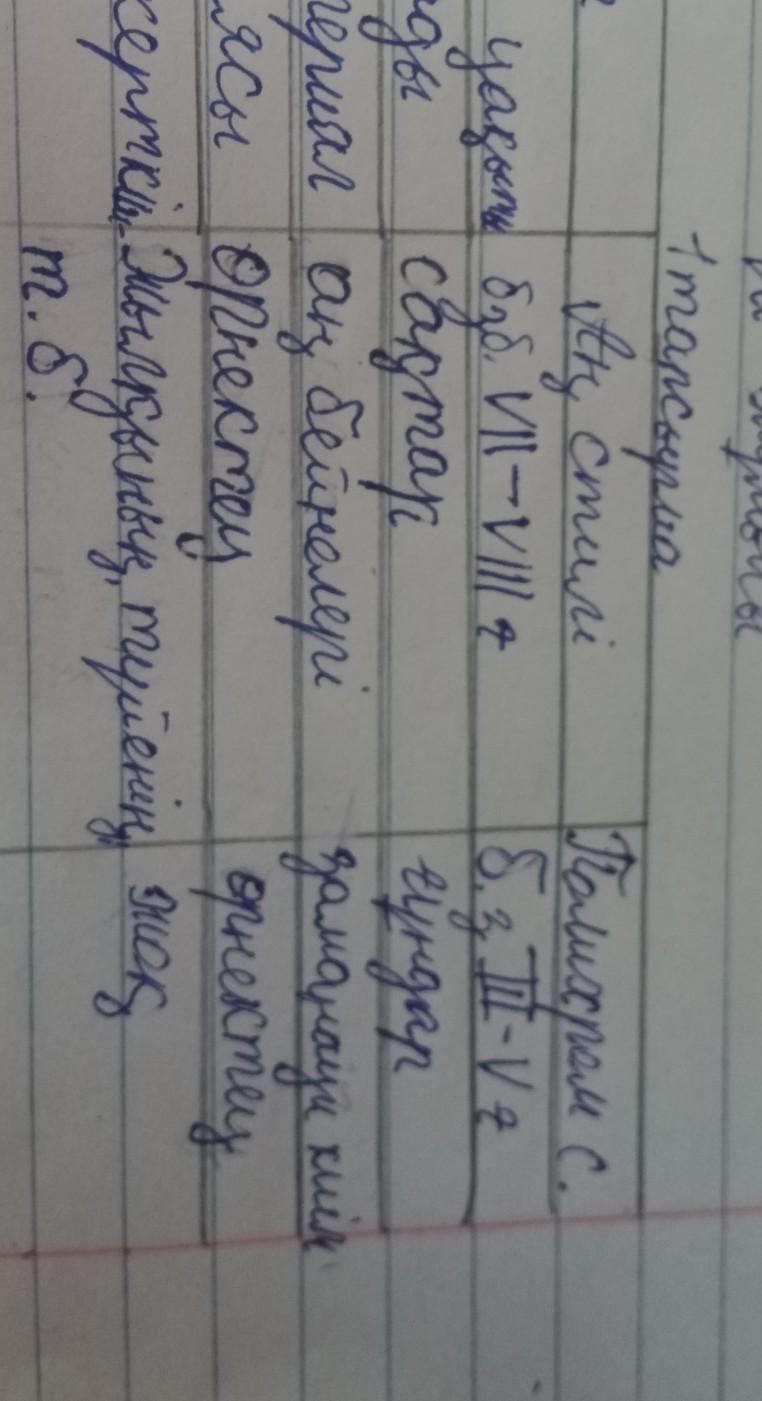 1 тапсырма
Аң стилі Полихром с.
уақыты б.з.б. VII-VIII ғ б.з III-V ғ
сақтар ғұндар
аң бейнелері заманауи киім
ясы өрнектеу өрнектеу
Жылқының, түйенің, жоқ
т.б.